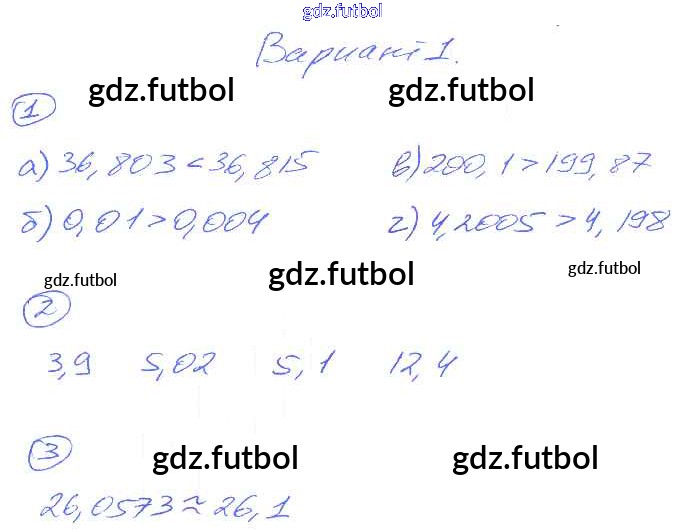 gdz.futbol
Вариант 1.
gdz.futbol gdz.futbol
1
а) 36,803 < 36,815 в) 200,1 > 199,87
б) 0,01 > 0,004 г) 4,2005 > 4,198
gdz.futbol gdz.futbol gdz.futbol
2
3,9 5,02 5,1 12,4
3 gdz.futbol gdz.futbol
26,0573 ≈ 26,1